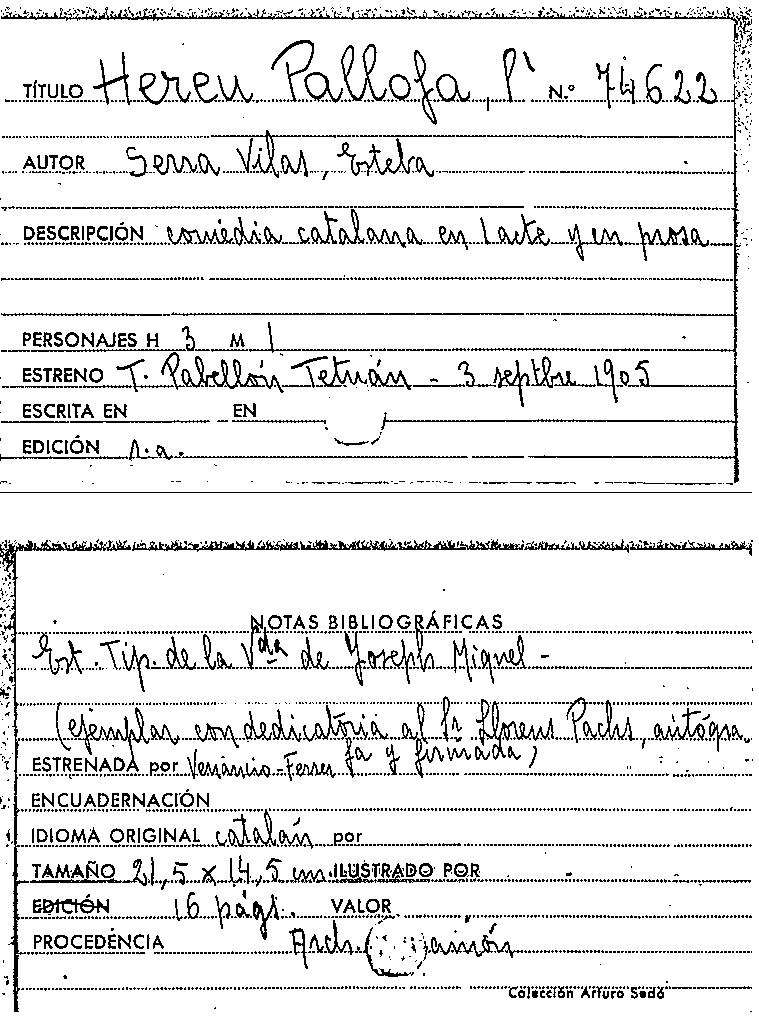 TÍTULO Hereu Pallofa, l' N.º 74622
AUTOR Serra Vilas, Esteba
DESCRIPCIÓN comèdia catalana en 1 acte y en prosa
PERSONAJES H 3 M 1
ESTRENO T. Pabellón Tetuán - 3 septbre 1905
ESCRITA EN EN
EDICIÓN s.a.
NOTAS BIBLIOGRÁFICAS
Est. Tip. de la Vda de Joseph Miquel -
(ejemplar con dedicatòria al Sr Llorens Pachs, autógra
fa y firmada)
ESTRENADA por Venáncio-Ferrer
ENCUADERNACIÓN
IDIOMA ORIGINAL catalán por
TAMAÑO 21,5 x 14,5 cm. ILUSTRADO POR
EDICIÓN 16 págs. VALOR
PROCEDÉNCIA Arch.
Colección Arturo Sedó